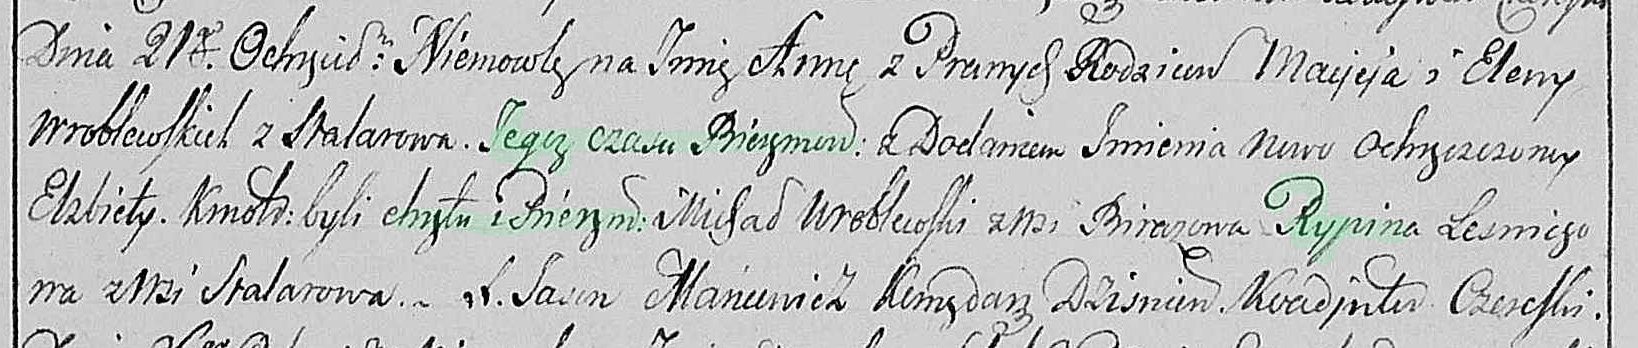 Dnia 21ª. Ochrzcił: Niemowlę na Imię Annę z Prawych Rodziców Macieja i Eleny
Wroblewskich z Stalarowa. Tegoż czasu Bierzmow: z Dodaniem Imienia nowo ochrzczoney
Elzbiety. Kmotr: byli chrztu i Bierzm: Michał Wroblewski z wsi Rypina Lesniego
wa z wsi Stalarowa. Jasen Mancewicz Komendarz Dzisnien. Koadjutor Czereski.